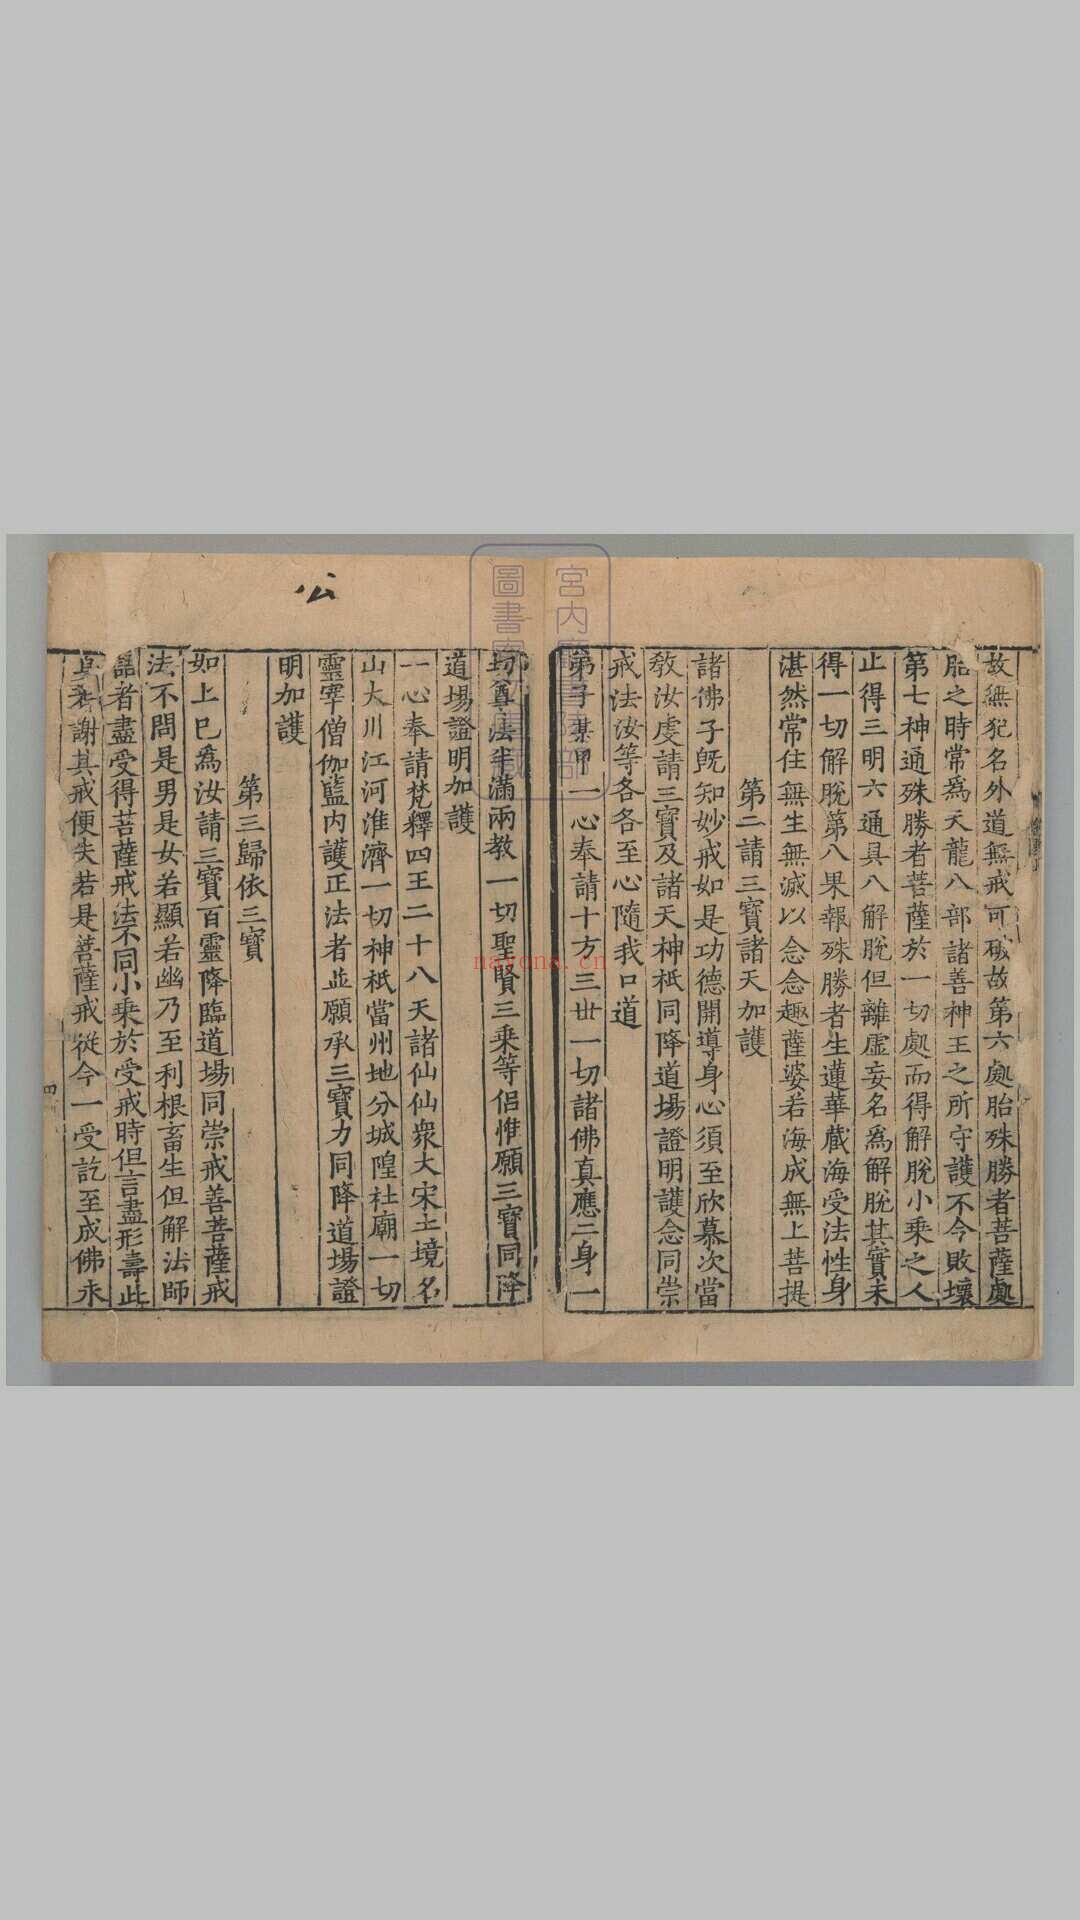 故無犯名外道無戒可破故第六處胎殊勝者菩薩處
胎之時常為天龍八部諸善神王之所守護不令敗壞
第七神通殊勝者菩薩於一切處而得解脫小乘之人
止得三明六通具八解脫但離虛妄名為解脫其實未
得一切解脫第八果報殊勝者生蓮華藏海受法性身
湛然常住無生無滅以念念趣薩婆若海成無上菩提
第二請三寶諸天加護
諸佛子旣知妙戒如是功德開導身心須至欣慕次當
教汝虔請三寶及諸天神祇同降道場證明護念同崇
戒法汝等各各至心隨我口道
弟子某甲一心奉請十方三世一切諸佛真應二身一
切尊法半滿兩教一切聖賢三乘等侶惟願三寶同降
道場證明加護
一心奉請梵釋四王二十八天諸仙仙衆大宋土境名
山大川江河淮濟一切神祇當州地分城隍社廟一切
靈宰僧伽藍內護正法者並願承三寶力同降道場證
明加護
第三歸依三寶
如上已為汝請三寶百靈降臨道場同崇戒善菩薩戒
法不問是男是女若顯若幽乃至利根畜生但解法師
語者盡受得菩薩戒法不同小乘於受戒時但言盡形壽此
身若謝其戒便失若是菩薩戒從今一受訖至成佛永
四
公
宮內廳書陵部
圖書寮藏
nayona.cn